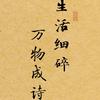 生活细碎
万物成诗